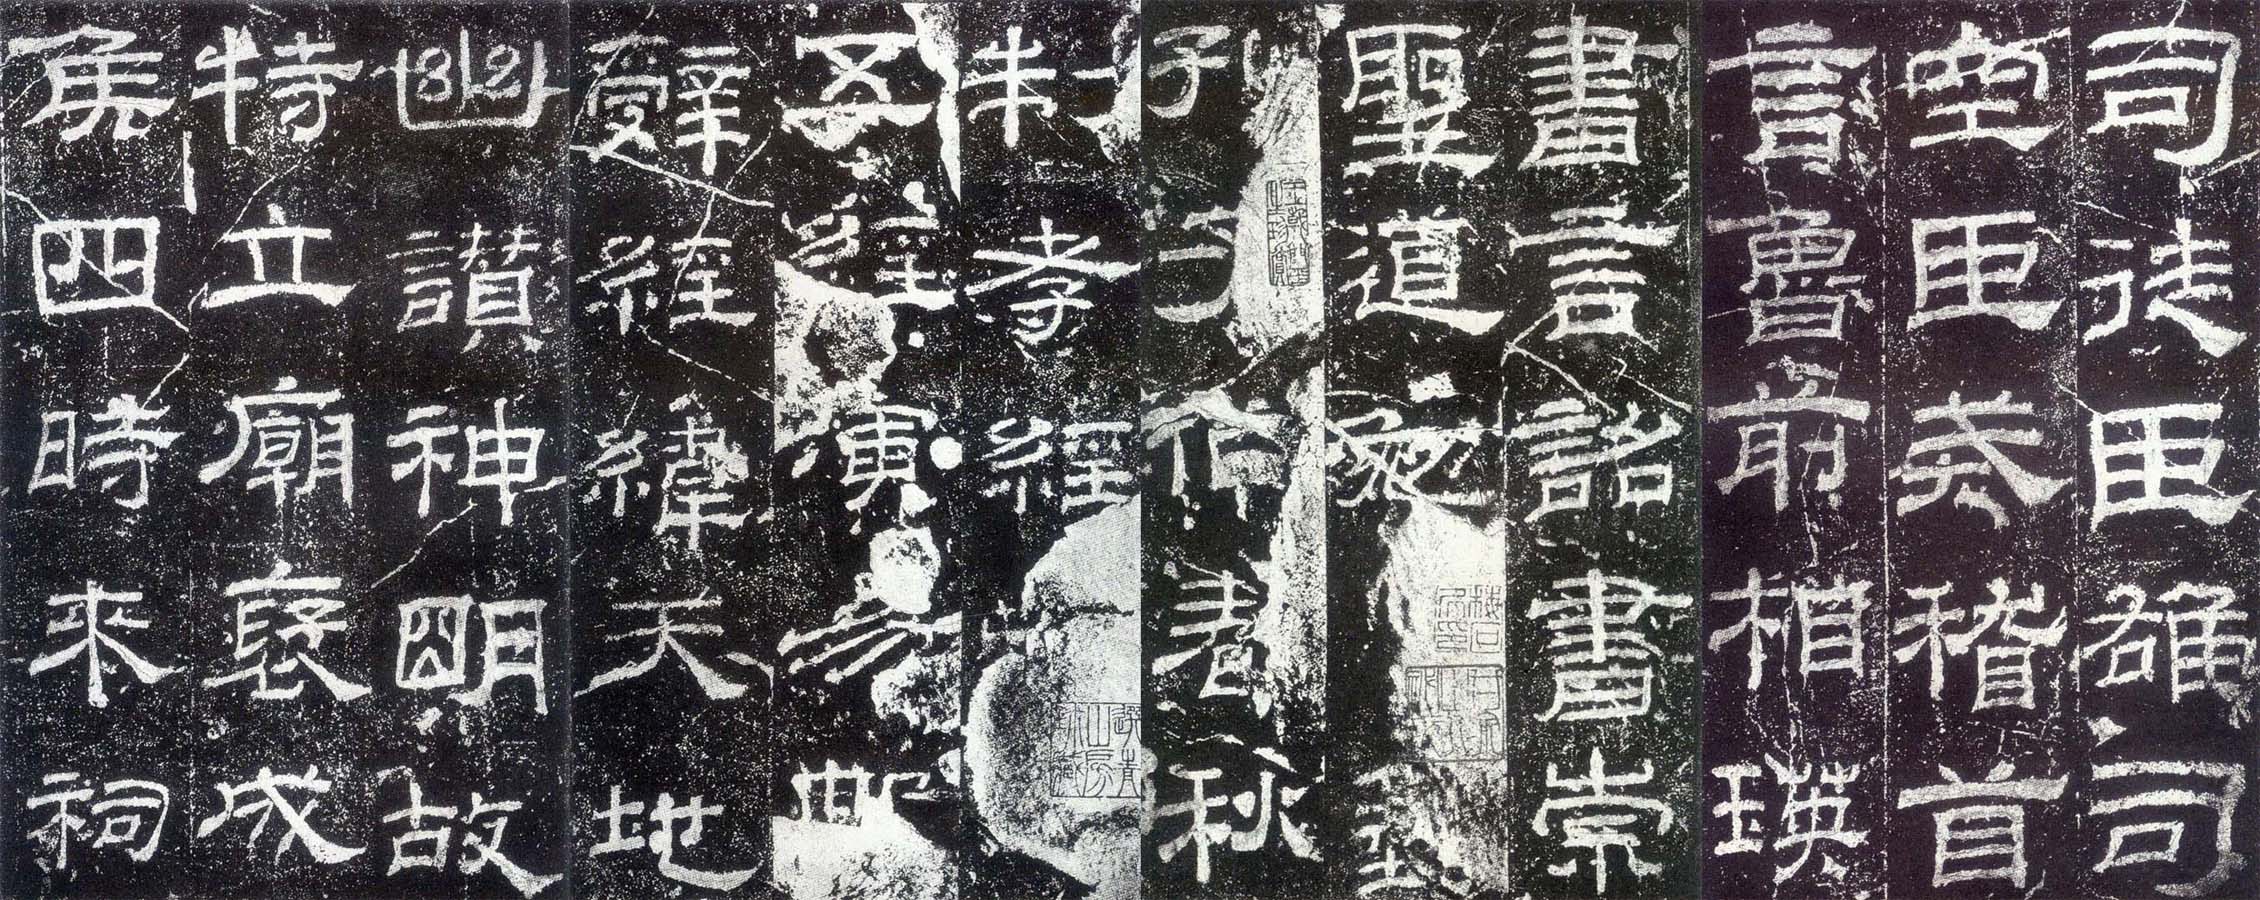 司徒臣雄司
空臣戒稽首
言魯前相瑛
書言詔書崇
聖道勉藝
孔子作春秋
制孝經
五經演易
辭經緯天地
幽讚神明故
特立廟褒成
侯四時來祠